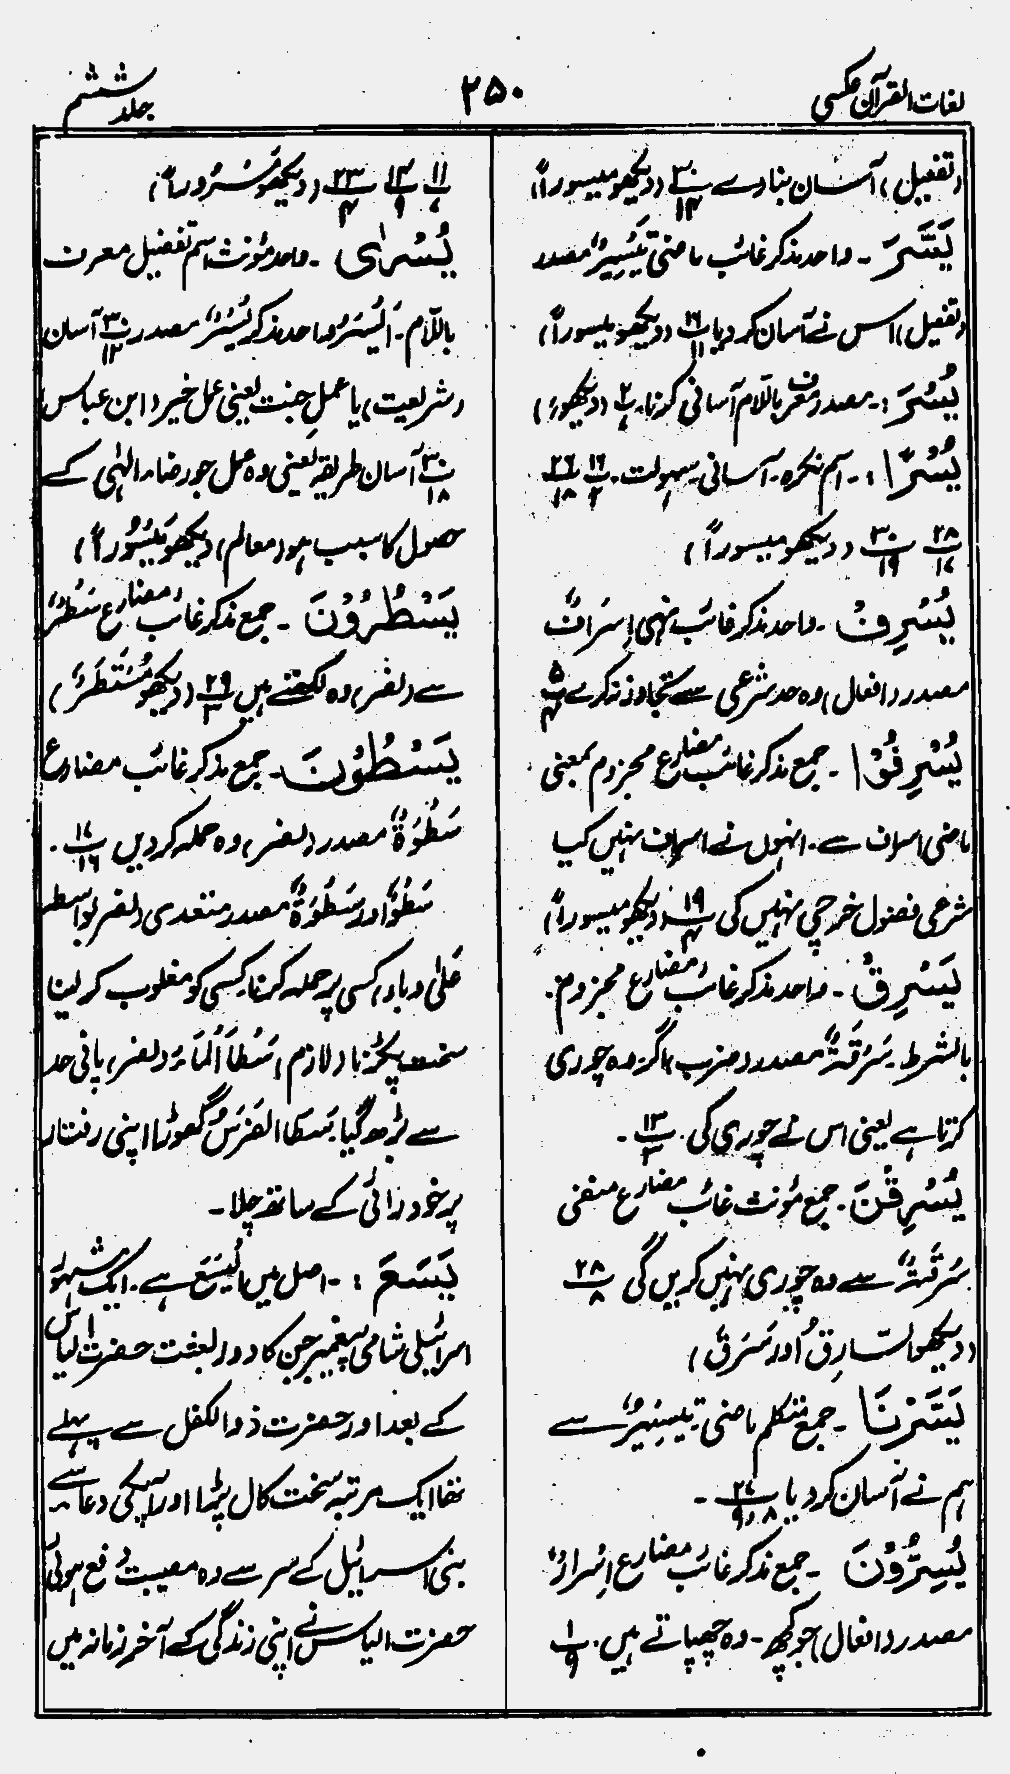 لغات القرآن عکسی
۲۵۰
جلد ششم
(تفعیل) آسان بنا دے ۳۰/۱۲ (دیکھو میسوراً)
یَسَّرَ ۔ واحد مذکر غائب ماضی تَیْسِیْرٌ مصدر
(تفعیل) اس نے آسان کر دیا ۲۹/۱۱ (دیکھو میسوراً)
یُسْرَ :۔ مصدر معرف باللّام آسانی کرنا ۲/۷ (دیکھو
یُسْرًا :۔ اسم نکرہ ۔ آسانی سہولت ۔ ۱۶/۲ ۲۶/۱۸
۲۸/۱۷ ۳۰/۱۹ (دیکھو میسوراً)
یُسْرِفْ ۔ واحد مذکر غائب نہی اِسْرَافٌ
مصدر (افعال) وہ حد شرعی سے تجاوز نہ کرے ۵
یُسْرِفُوْا ۔ جمع مذکر غائب مضارع مجزوم بمعنی
ماضی اسراف سے ۔ انہوں نے اسراف نہیں کیا
شرعی فضول خرچی نہیں کی ۱۹/۴ (دیکھو میسوراً)
یَسْرِقْ ۔ واحد مذکر غائب مضارع مجزوم
بالشرط ۔ سَرِقَۃٌ مصدر (ضرب) اگر وہ چوری
کرتا ہے یعنی اس نے چوری کی ۔ ۱۳/۳ ۔
یَسْرِقْنَ ۔ جمع مؤنث غائب مضارع منفی
سَرِقَۃٌ سے وہ چوری نہیں کریں گی ۲۸/۸
(دیکھو السَّارِقُ اور سَرَقَ)
یَسَّرْنَا ۔ جمع متکلم ماضی تَیْسِیْرٌ سے
ہم نے آسان کر دیا ۲۷/۸،۹ ۔
یُسِرُّوْنَ ۔ جمع مذکر غائب مضارع اِسْرَارٌ
مصدر (افعال) جو کچھ ۔ وہ چھپاتے ہیں ۔ ۱/۹
۱۱/۷ ۱۳/۹ ۲۳/۴ (دیکھو مَسْرُوراً)
یُسْرٰی ۔ واحد مؤنث اسم تفضیل معرف
باللّام ۔ اَلْیُسْرٰی واحد مذکر یُسْرٌ مصدر ۳۰/۱۲ آسان
(شریعت) یا عملِ جنت یعنی عمل خیر (ابن عباس
۳۰/۱۸ آسان طریقہ یعنی وہ عمل جو رضاء الٰہی کے
حصول کا سبب ہو (معالم) دیکھو مَیْسُوْراً)
یَسْطُرُوْنَ ۔ جمع مذکر غائب مضارع سَطْرٌ
سے (نصر) وہ لکھتے ہیں ۲۹/۳ (دیکھو مُسْتَطَرٌ)
یَسْطُوْنَ ۔ جمع مذکر غائب مضارع
سَطْوَۃٌ مصدر (نصر) وہ حملہ کر دیں ۱۷/۱۶ ۔
سَطْوٌ اور سَطْوَۃٌ مصدر متعدی (نصر بواسطہ
عَلٰی و با) کسی پر حملہ کرنا کسی کو مغلوب کر لینا
سخت پکڑنا (لازم) سَطَا الْمَاءُ (نصر) پانی حد
سے بڑھ گیا ۔ سَطَا الْفَرَسُ گھوڑا اپنی رفتار
پر خود رائی کے ساتھ چلا ۔
یَسَعَ :۔ اصل میں اَلْیَسَعَ ہے ۔ ایک مشہور
اسرائیلی شامی پیغمبر جن کا دور بعثت حضرت الیاس
کے بعد اور حضرت ذو الکفل سے پہلے
تھا ایک مرتبہ سخت کال پڑا اور آپ کی دعا سے
بنی اسرائیل کے سر سے وہ مصیبت رفع ہوئی
حضرت الیاس نے اپنی زندگی کے آخر زمانہ میں